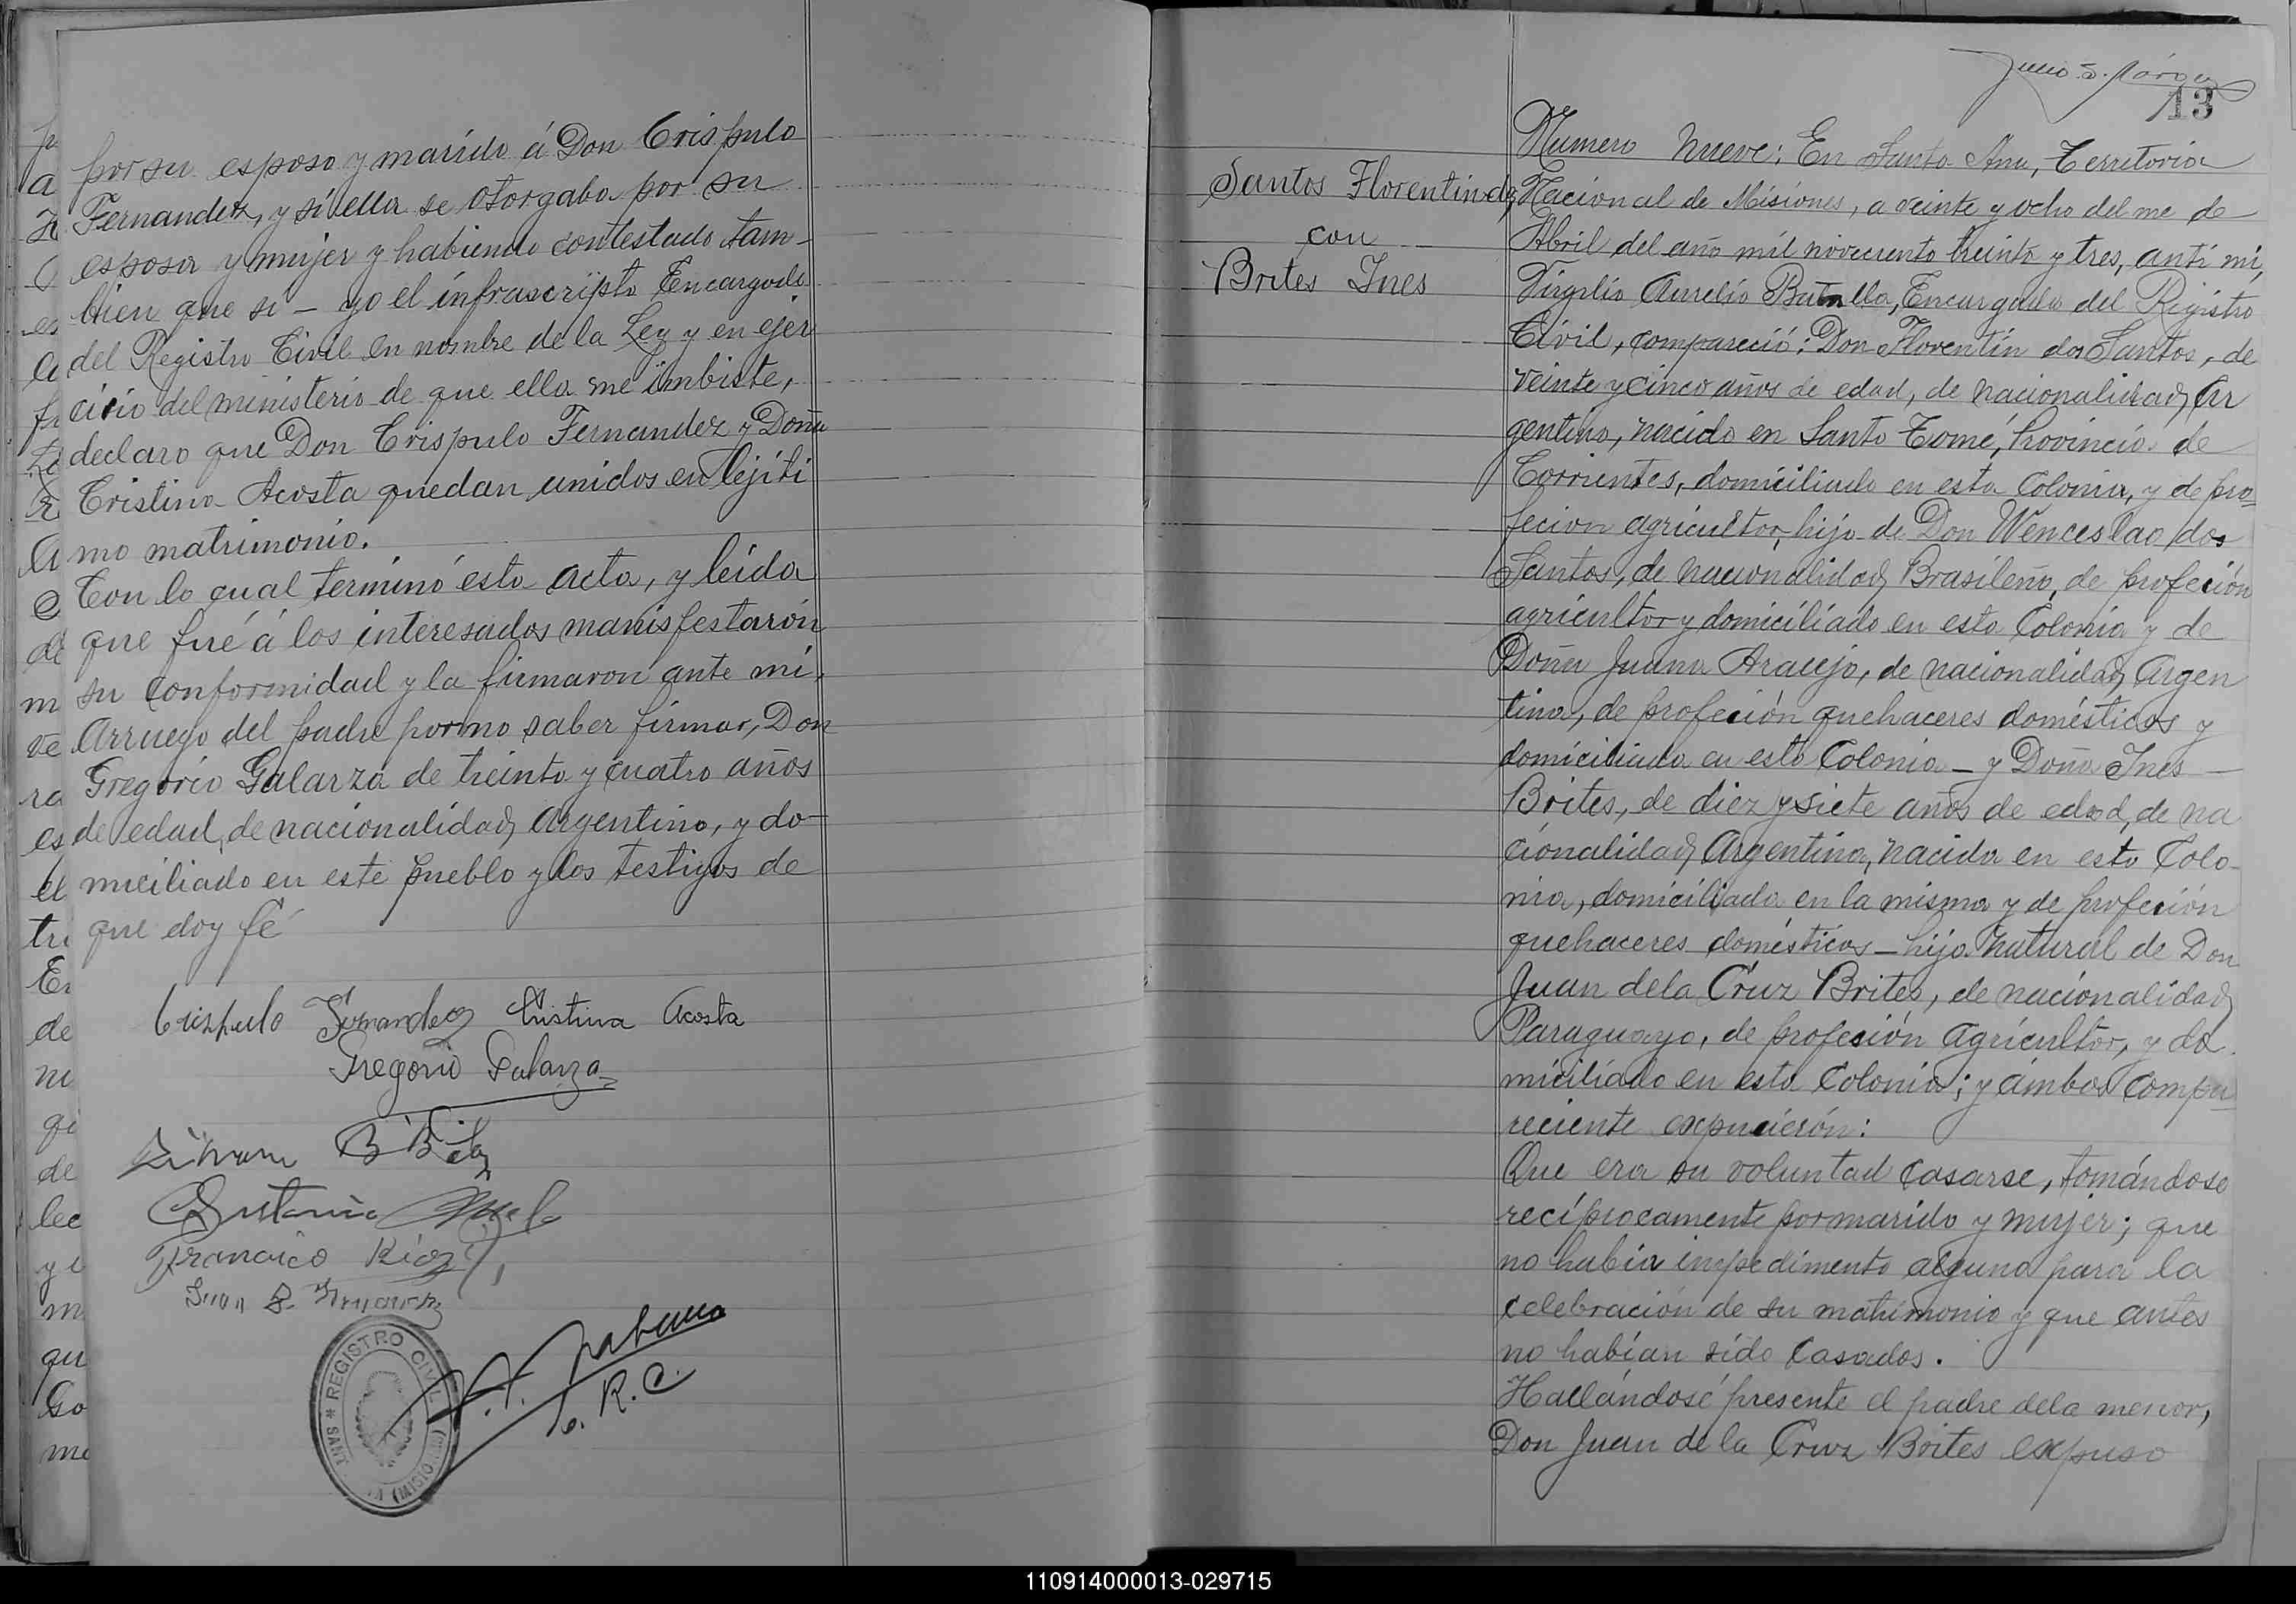 por su esposo y marido á Don Crispulo
Fernandez, y sí ella se otorgaba por su
esposa y mujer y habiendo contestado tam-
bien que si – yo el infrascripto Encargado
del Registro Civil en nombre de la Ley y en ejer
cicio del ministerio de que ella me imbiste,
declaro que Don Crispulo Fernandez y Doña
Cristina Acosta quedan unidos en lejiti
mo matrimonio.
Con lo cual terminó esta acta, y leida
que fué á los interesados manisfestarón
su conformidad y la firmaron ante mi,
Arruego del padre por no saber firmar, Don
Gregorio Galarza de treinta y cuatro años
de edad, de nacionalidad Argentino, y do-
miciliado en este pueblo y los testigos de
que doy fé
Crispulo Fernandez Cristina Acosta
Gregorio Galarza
Francisco Rios
Juan B.
REGISTRO CIVIL
SANT
(MISIO
E. R. C.
13
Santos Florentin dos
con
Brites Ines
Numero Nueve: En Santa Ana, Territorio
Nacional de Misiones, a veinte y ocho del me de
Abril del año mil noveciento treinta y tres, anti mi,
Virgilio Aurelio Encargado del Registro
Civil, compareció: Don Florentín dos Santos, de
veinte y cinco años de edad, de nacionalidad Ar
gentino, nacido en Santo Tomé, Provincia de
Corrientes, domiciliado en esta Colonia, y de pro-
fecion agricultor, hijo de Don Wenceslao dos
Santos, de nacionalidad Brasileño, de profeción
agricultor y domiciliado en esta Colonia y de
Doña Juana Araujo, de nacionalidad Argen
tina, de profeción quehaceres domésticos y
domiciliada en esta Colonia – y Doña Ines –
Brites, de diez y siete años de edad, de na
cionalidad Argentina, nacida en esta Colo-
nia, domiciliada en la misma y de profeción
quehaceres domésticos – hija natural de Don
Juan de la Cruz Brites, de nacionalidad
Paraguayo, de profeción agricultor, y do
miciliado en esta Colonia; y ámbos compa-
reciente expucierón:
Que era su voluntad casarse, tomándose
recíprocamente por marido y mujer; que
no habia impedimento alguno para la
celebración de su matrimonio y que antes
no habían sido casados.
Hallándosé presente el padre de la menor,
Don Juan de la Cruz Brites expuso
110914000013-029715